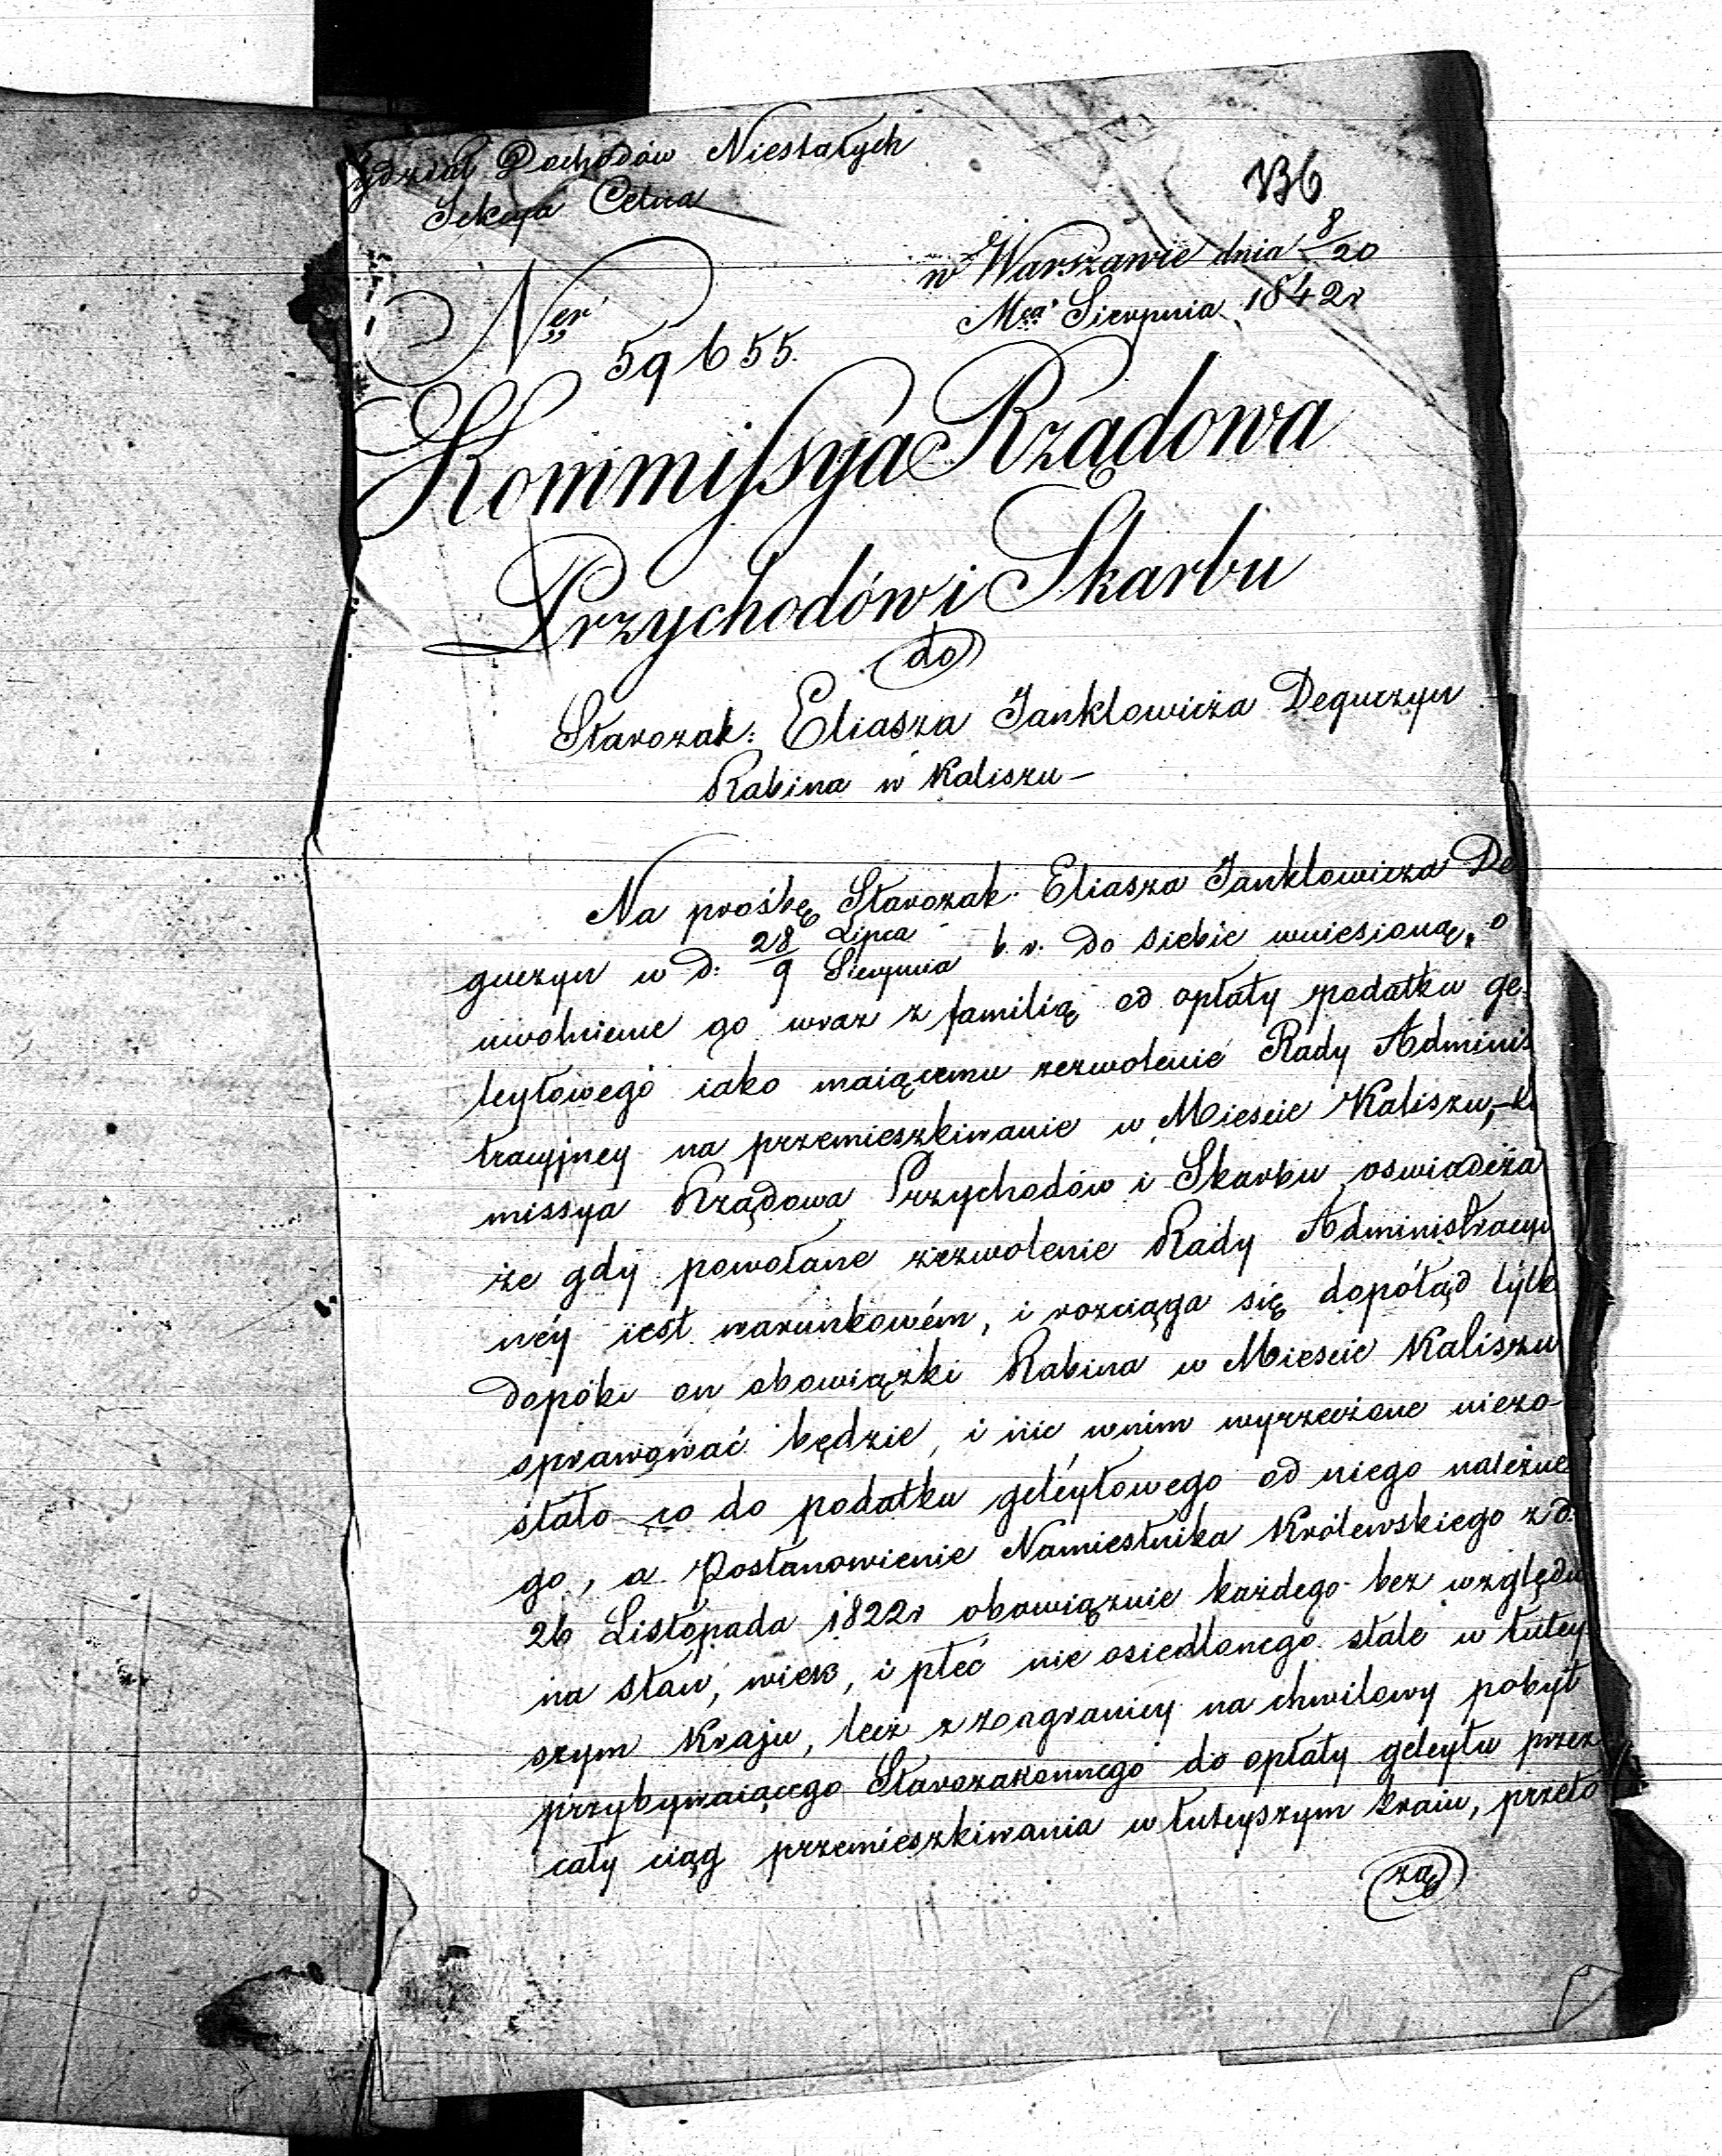 Wydział Dochodów Niestałych
Sekcya Celna
136
w Warszawie dnia 8/20
Mca Sierpnia 1842 r
Ner 59655.
Kommissya Rządowa
Przychodów i Skarbu
do
Starozak: Eliasza Janklowicza Deguczyn
Rabina w Kaliszu –
Na prośbę Starozak. Eliasza Janklowicza De
guczyn w d: 28 Lipca / 9 Sierpnia b. r. do siebie wniesioną, o
uwolnienie go wraz z familią od opłaty podatku ge
leytowego iako maiącemu zezwolenie Rady Adminis
tracyjney na przemieszkiwanie w Mieście Kaliszu, –
missya Rządowa Przychodów i Skarbu oswiadcza
że gdy powołane zezwolenie Rady Administracyi
néy iest warunkowém, i rozciąga się dopótąd tylk
dopóki on obowiązki Rabina w Mieście Kaliszu
sprawować będzie, i nic w nim wyrzeczone niezo-
stało co do podatku geleytowego od niego należne
go, a Postanowienie Namiestnika Królewskiego z d:
26 Listopada 1822 r obowiązuie każdego bez względu
na stan, wiek, i płeć nie osiedlonego stale w tutey
szym Kraju, lecz z zagranicy na chwilowy pobyt
przybywaiącego Starozakonnego do opłaty geleytu przez
cały ciąg przemieszkiwania w tuteyszym kraiu, przeto